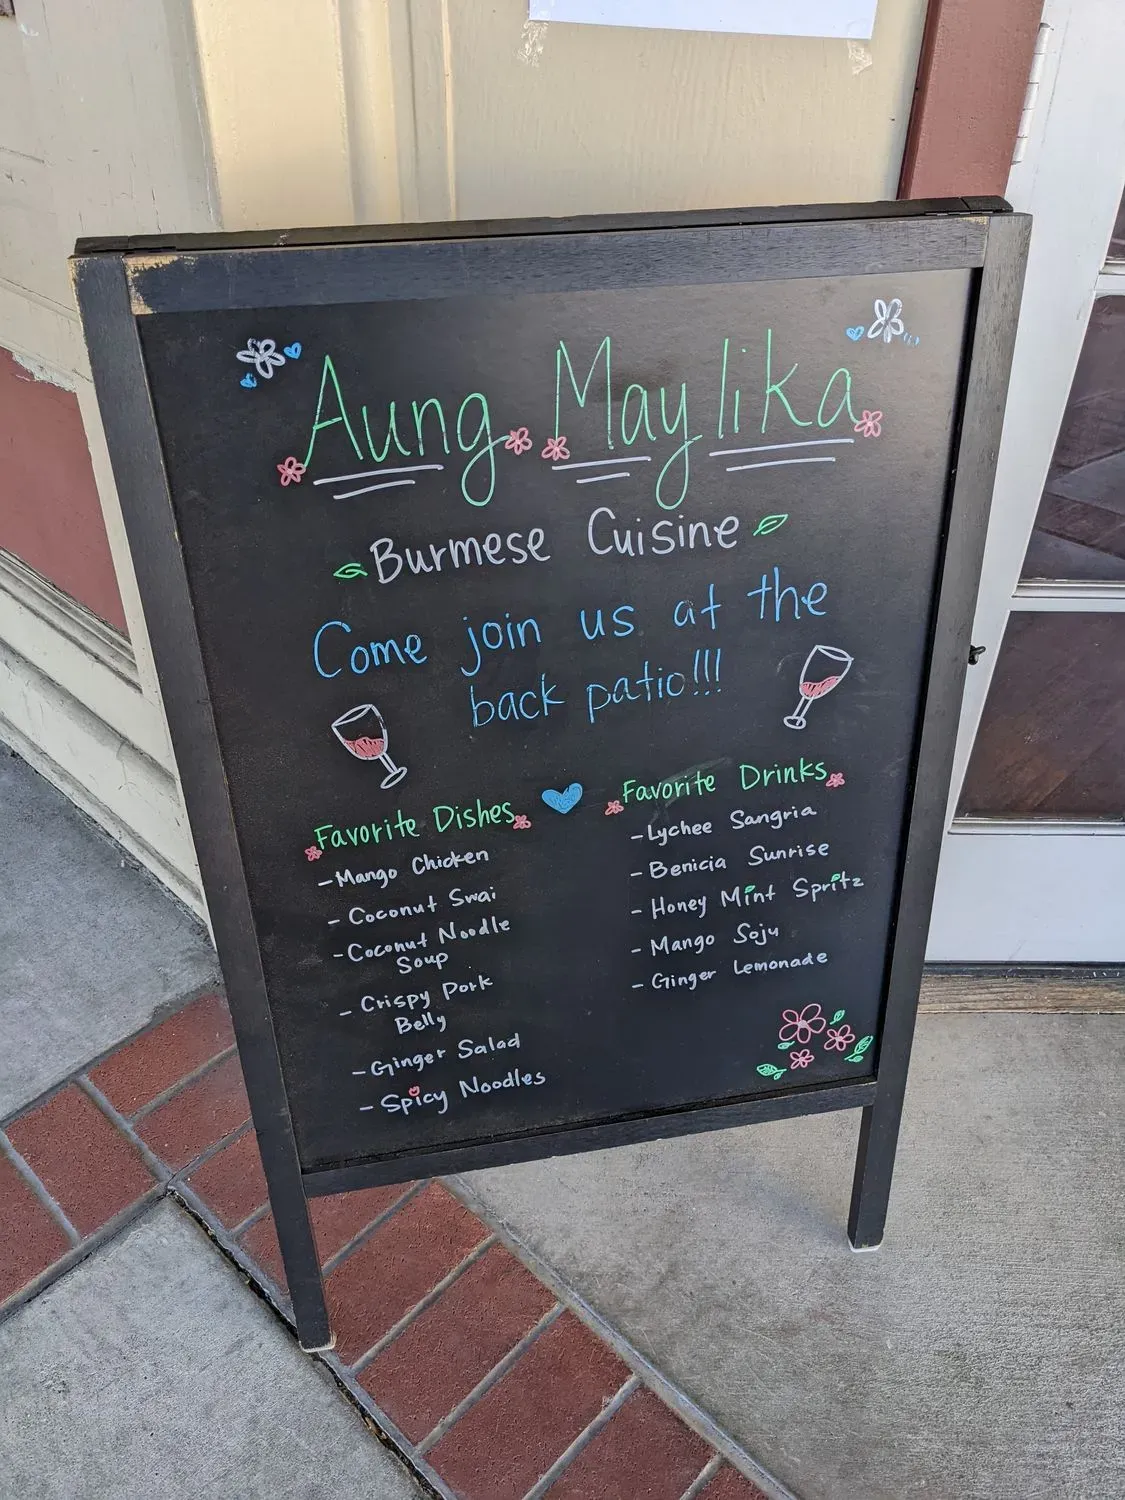 Aung May lika
Burmese Cuisine
Come join us at the
back patio!!!
Favorite Dishes
- Mango Chicken
- Coconut Swai
- Coconut Noodle
Soup
- Crispy Pork
Belly
- Ginger Salad
- Spicy Noodles
Favorite Drinks
- Lychee Sangria
- Benicia Sunrise
- Honey Mint Spritz
- Mango Soju
- Ginger Lemonade